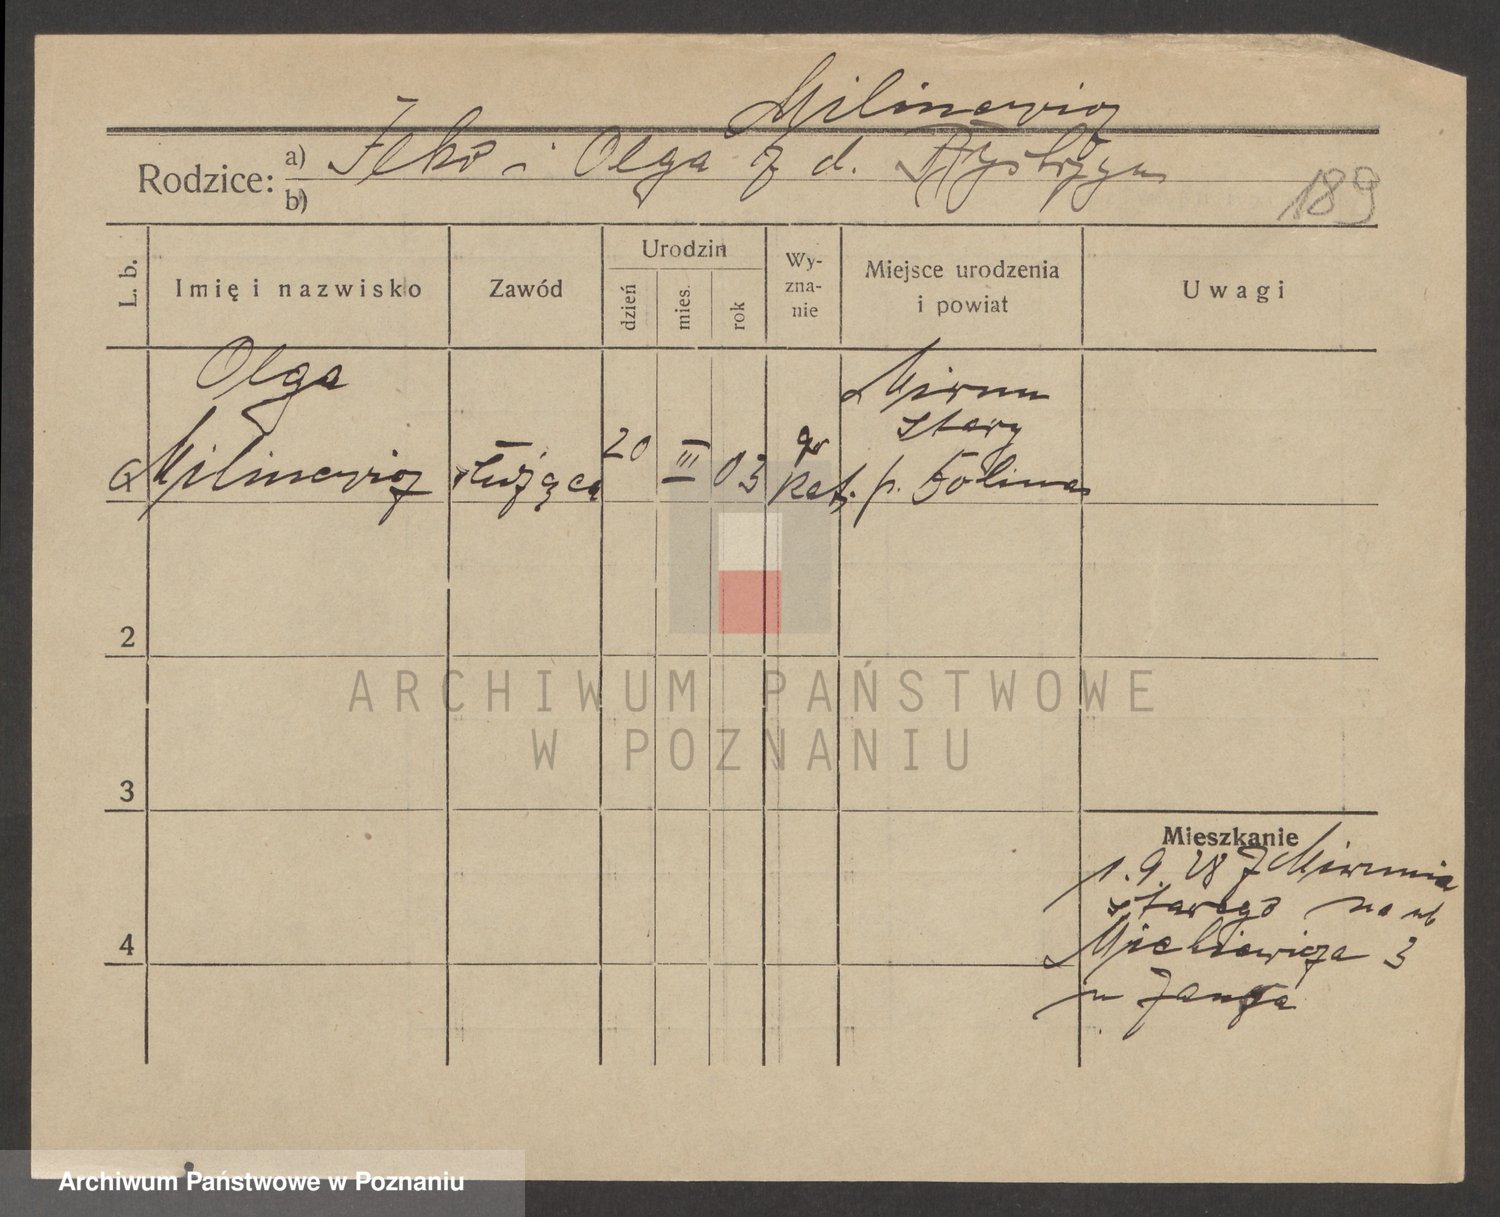 Milinewicz
Rodzice: a) Ilko i Olga z d.
b)
189
L. b.
Imię i nazwisko
Zawód
Urodzin
dzień
mies.
rok
Wy-
zna-
nie
Miejsce urodzenia
i powiat
Uwagi
Olga
Milinewicz
służąca
20
III
03
gr
kat.
Mizuń
stary
p. Dolina
2
3
4
Mieszkanie
1.9.28 z Mizunia
starego na ul
Mickiewicza 3
u
ARCHIWUM PAŃSTWOWE
W POZNANIU
Archiwum Państwowe w Poznaniu